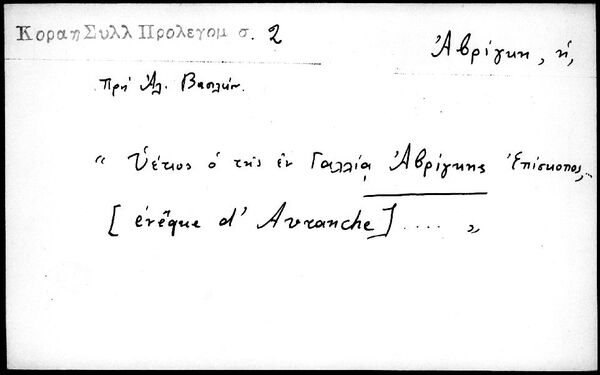 Κοραη Συλλ Προλεγομ σ. 2
Ἀβρίγκη, ἡ,
Πρὸς Ἀλ. Βασιλείου.
“ Ὑέτιος ὁ τῆς ἐν Γαλλίᾳ Ἀβρίγκης Ἐπίσκοπος,..
[ évêque d' Avranche ] .... „